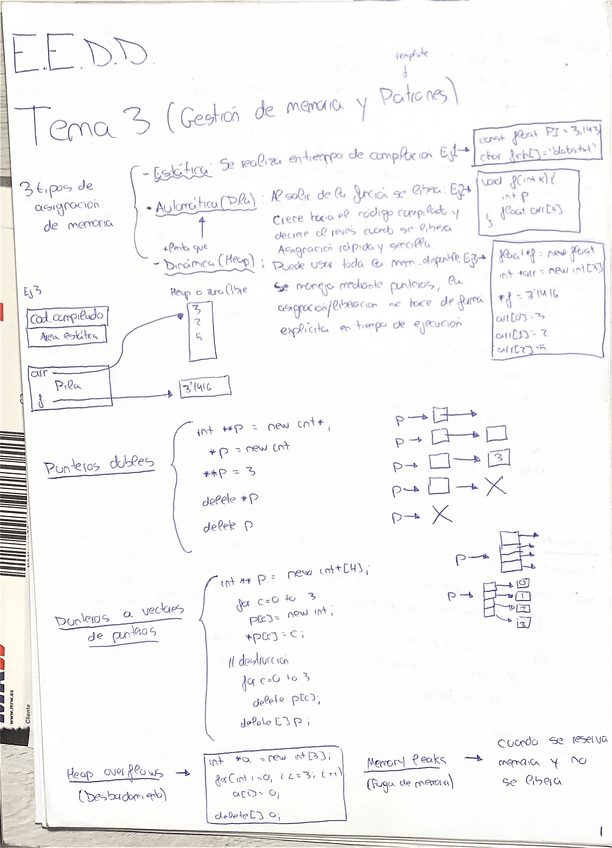 E.E.D.D.
template
Tema 3 (Gestión de memoria y Patrones)
3 tipos de
asignación
de memoria
- Estática: Se realiza en tiempo de compilación Ej1
const float PI = 3.143
- Automática (Pila): Al salir de la función se libera. Ej2
Crece hacia el código compilado y
decrece al revés cuando se libera
Asignación rápida y sencilla.
void f(int x) {
int p
float arr[4]
}
- Dinámica (Heap): Puede usar toda la mem. disponible Ej3
Se maneja mediante punteros, la
asignación/liberación se hace de forma
explícita en tiempo de ejecución
float *f = new float
int *arr = new int[3]
*f = 3'1416
arr[0] = 3
arr[1] = 2
arr[2] = 5
Ej 3
Cod. compilado
Area estática
arr
Pila
f
Heap o zona libre
3
2
5
3'1416
Punteros dobles
int **p = new int*;
*p = new int
**p = 3
delete *p
delete p
p
p
p
3
p
p
Punteros a vectores
de punteros
int ** p = new int*[4];
for c=0 to 3
p[c] = new int;
*p[c] = c;
// destrucción
for c=0 to 3
delete p[c];
delete[] p;
p
p
0
1
2
3
Heap overflows
(Desbordamiento)
int *a = new int[3];
for(int i=0; i<=3; i++)
a[i] = 0;
delete[] a;
Memory leaks
(Fuga de memoria)
cuando se reserva
memoria y no
se libera
1
www.mrw.es
Cliente